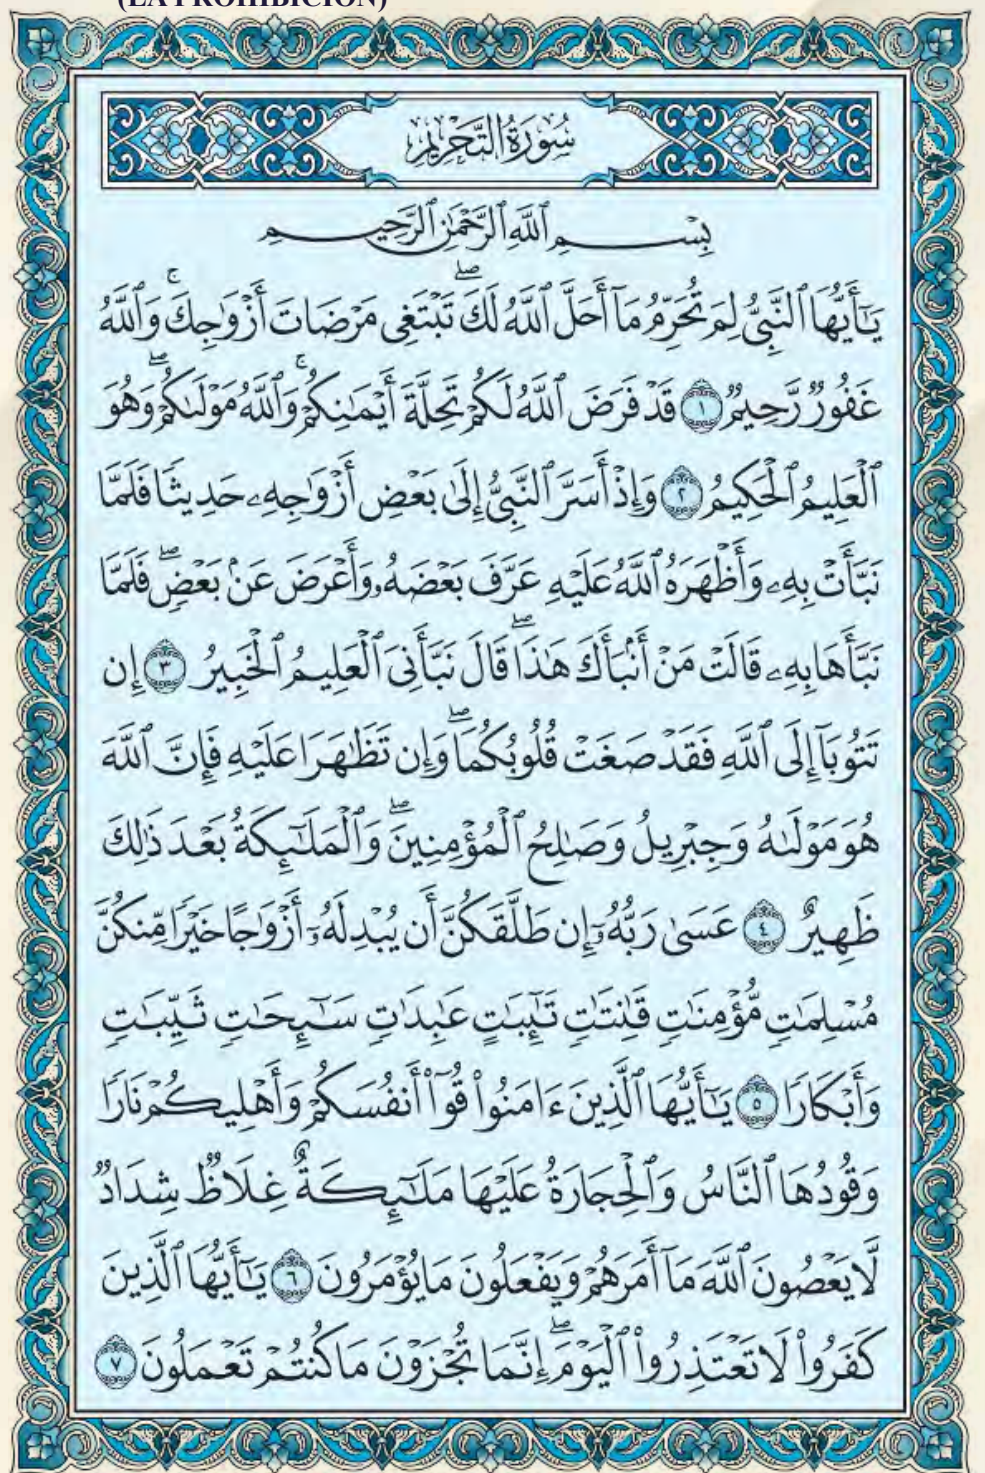 (LA PROHIBICIÓN)
سُورَةُ التَّحْرِيمِ
بِسْمِ ٱللَّهِ ٱلرَّحْمَٰنِ ٱلرَّحِيمِ
يَٰٓأَيُّهَا ٱلنَّبِيُّ لِمَ تُحَرِّمُ مَآ أَحَلَّ ٱللَّهُ لَكَۖ تَبۡتَغِي مَرۡضَاتَ أَزۡوَٰجِكَۚ وَٱللَّهُ
غَفُورٞ رَّحِيمٞ ١ قَدۡ فَرَضَ ٱللَّهُ لَكُمۡ تَحِلَّةَ أَيۡمَٰنِكُمۡۚ وَٱللَّهُ مَوۡلَىٰكُمۡۖ وَهُوَ
ٱلۡعَلِيمُ ٱلۡحَكِيمُ ٢ وَإِذۡ أَسَرَّ ٱلنَّبِيُّ إِلَىٰ بَعۡضِ أَزۡوَٰجِهِۦ حَدِيثٗا فَلَمَّا
نَبَّأَتۡ بِهِۦ وَأَظۡهَرَهُ ٱللَّهُ عَلَيۡهِ عَرَّفَ بَعۡضَهُۥ وَأَعۡرَضَ عَنۢ بَعۡضٖۖ فَلَمَّا
نَبَّأَهَا بِهِۦ قَالَتۡ مَنۡ أَنۢبَأَكَ هَٰذَاۖ قَالَ نَبَّأَنِيَ ٱلۡعَلِيمُ ٱلۡخَبِيرُ ٣ إِن
تَتُوبَآ إِلَى ٱللَّهِ فَقَدۡ صَغَتۡ قُلُوبُكُمَاۖ وَإِن تَظَٰهَرَا عَلَيۡهِ فَإِنَّ ٱللَّهَ
هُوَ مَوۡلَىٰهُ وَجِبۡرِيلُ وَصَٰلِحُ ٱلۡمُؤۡمِنِينَۖ وَٱلۡمَلَٰٓئِكَةُ بَعۡدَ ذَٰلِكَ
ظَهِيرٌ ٤ عَسَىٰ رَبُّهُۥٓ إِن طَلَّقَكُنَّ أَن يُبۡدِلَهُۥٓ أَزۡوَٰجًا خَيۡرٗا مِّنكُنَّ
مُسۡلِمَٰتٖ مُّؤۡمِنَٰتٖ قَٰنِتَٰتٖ تَٰٓئِبَٰتٍ عَٰبِدَٰتٖ سَٰٓئِحَٰتٖ ثَيِّبَٰتٖ
وَأَبۡكَارٗا ٥ يَٰٓأَيُّهَا ٱلَّذِينَ ءَامَنُواْ قُوٓاْ أَنفُسَكُمۡ وَأَهۡلِيكُمۡ نَارٗا
وَقُودُهَا ٱلنَّاسُ وَٱلۡحِجَارَةُ عَلَيۡهَا مَلَٰٓئِكَةٌ غِلَاظٞ شِدَادٞ
لَّا يَعۡصُونَ ٱللَّهَ مَآ أَمَرَهُمۡ وَيَفۡعَلُونَ مَا يُؤۡمَرُونَ ٦ يَٰٓأَيُّهَا ٱلَّذِينَ
كَفَرُواْ لَا تَعۡتَذِرُواْ ٱلۡيَوۡمَۖ إِنَّمَا تُجۡزَوۡنَ مَا كُنتُمۡ تَعۡمَلُونَ ٧